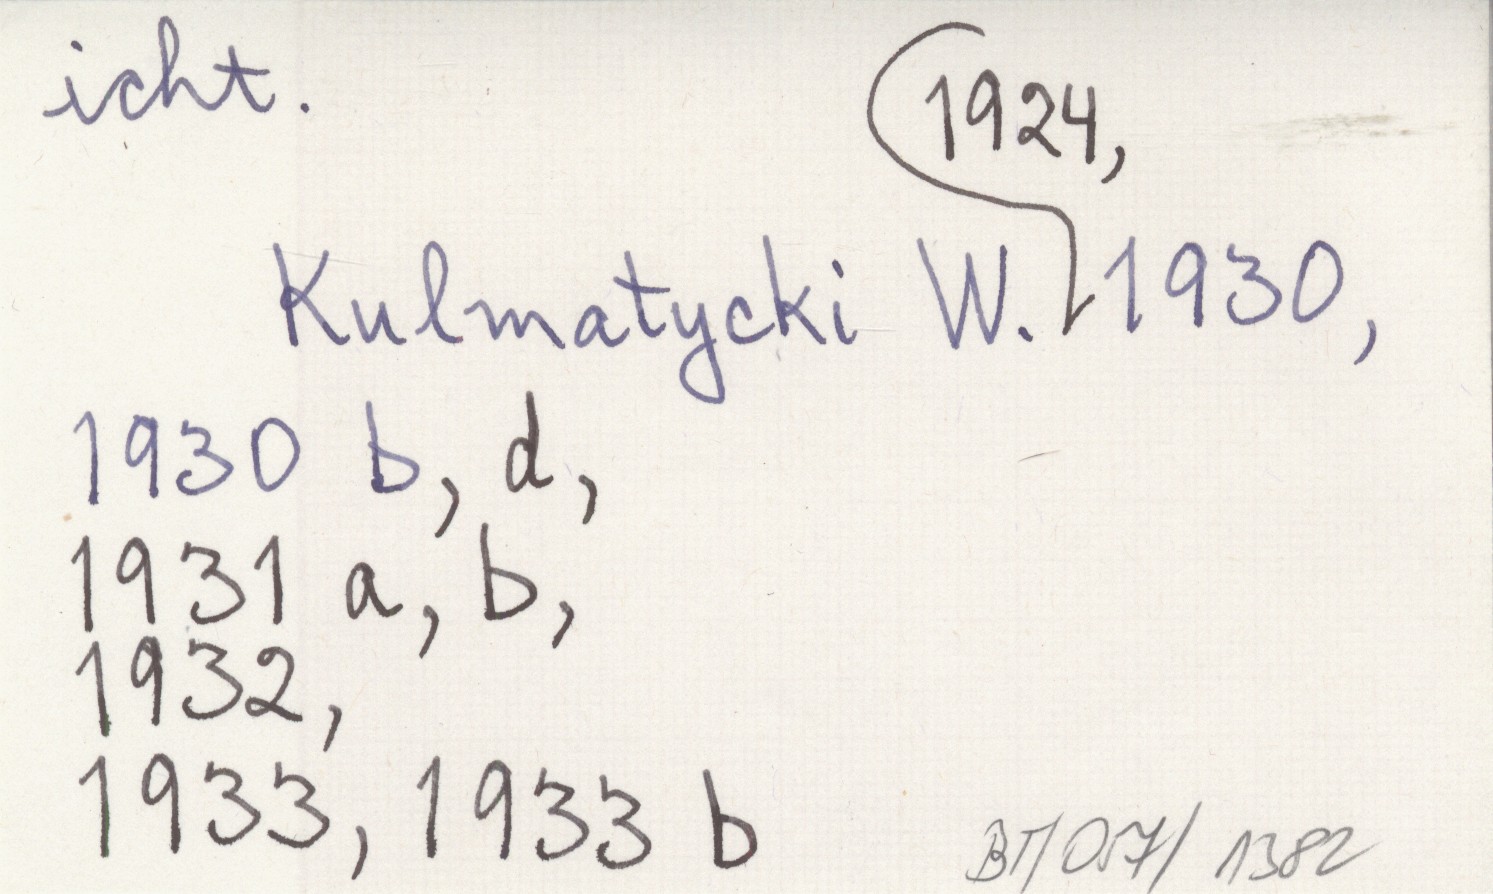 icht.
1924,
Kulmatycki W. 1930,
1930 b, d,
1931 a, b,
1932,
1933, 1933 b
BT/057/ 1382